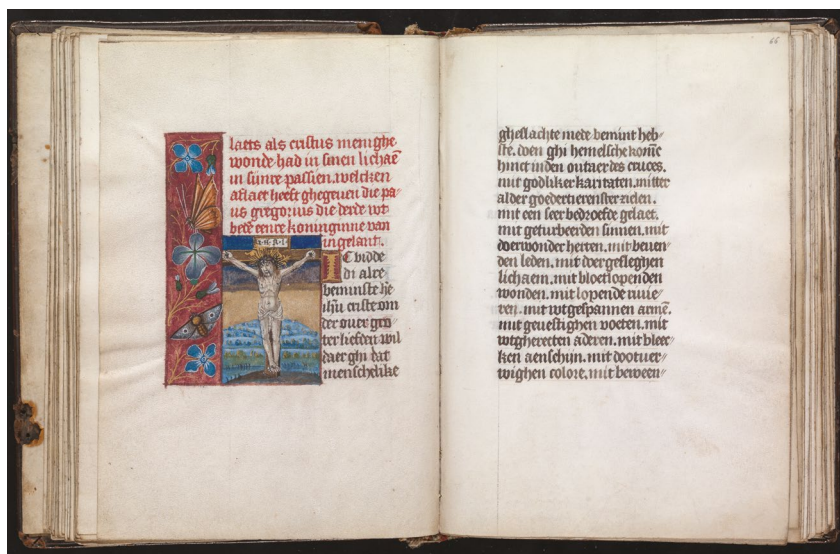 laets als cristus menighe
wonde had in sinen lichaē
in sijnre passien. welcken
aflaet heeft ghegeuen die pa-
us gregorius die derde wt
bede eenre koninginne van
ingelant.
I·N·R·I·
IC bidde
di alre
beminste he
ihū criste om
der ouer gro
ter liefden wil
daer ghi dat
menschelike
66
gheslachte mede bemint heb-
ste. doen ghi hemelsche konīc
hinct inden outaer des cruces.
mit godliker karitaten. mitter
alder goedertierenster zielen.
mit een seer bedroefde gelaet.
mit geturbeerden sinnen. mit
doerwonder herten. mit beuen-
den leden. mit doergesleghen
lichaem. mit bloetlopenden
wonden. mit lopende riuie-
ren. mit wtgespannen armē.
mit geuestighen voeten. mit
wtgherecten aderen. mit bleec-
ken aenschijn. mit dootuer-
wighen colore. mit beween-